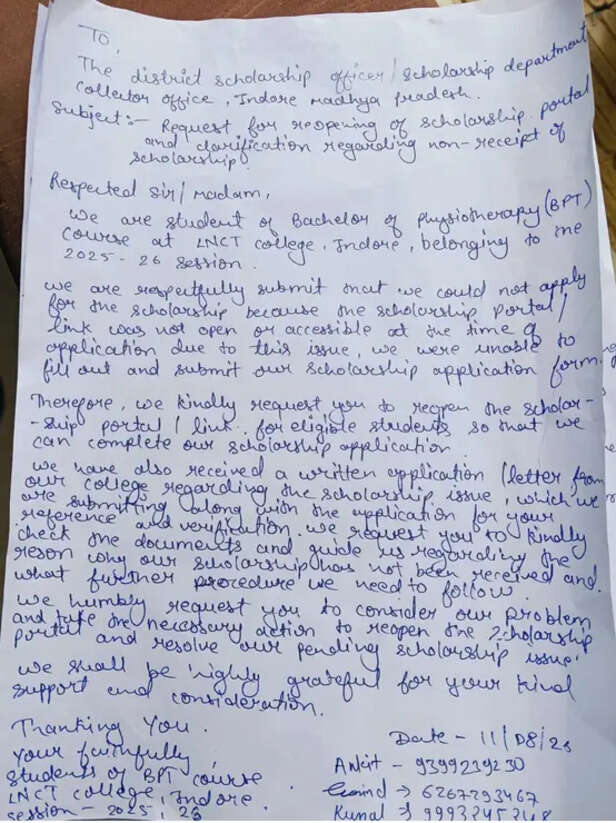 To,
The district scholarship officer / scholarship department
Collector office, Indore Madhya Pradesh.
Subject:- Request for reopening of scholarship portal
and clarification regarding non-receipt of
scholarship.
Respected Sir/Madam,
We are student of Bachelor of Physiotherapy (BPT)
course at LNCT college, Indore, belonging to the
2025-26 session.
we are respectfully submit that we could not apply
for the scholarship because the scholarship portal/
link was not open or accessible at the time of
application due to this issue, we were unable to
fill out and submit our scholarship application form.
Therefore, we kindly request you to reopen the scholar-
-ship portal / link for eligible students so that we
can complete our scholarship application.
we have also received a written application (letter from
our college regarding the scholarship issue, which we
are submitting along with the application for your
reference and verification. we request you to kindly
check the documents and guide us regarding the
reson why our scholarship has not been received and
what further procedure we need to follow.
we humbly request you to consider our problem
and take the necessary action to reopen the scholarship
portal and resolve our pending scholarship issue.
we shall be highly grateful for your kind
support and consideration.
Thanking You.
Your faithfully,
Students of BPT course
LNCT college, Indore.
session - 2025, 26
Date - 11/08/26
Ankit - 9399239230
→ 6267293467
Kunal → 9993245248